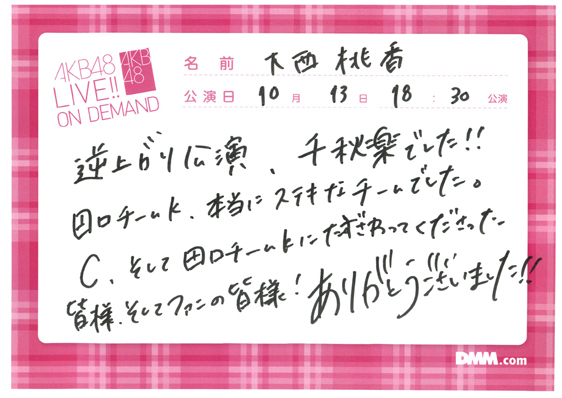 AKB48
LIVE!!
ON DEMAND
AKB
48
名前 大西桃香
公演日 10月 13日 18:30公演
逆上がり公演、千秋楽でした!!
田口チームK、本当にステキなチームでした。
C、そして田口チームKにたずさわってくださった
皆様、そしてファンの皆様!ありがとうございました!!
DMM.com